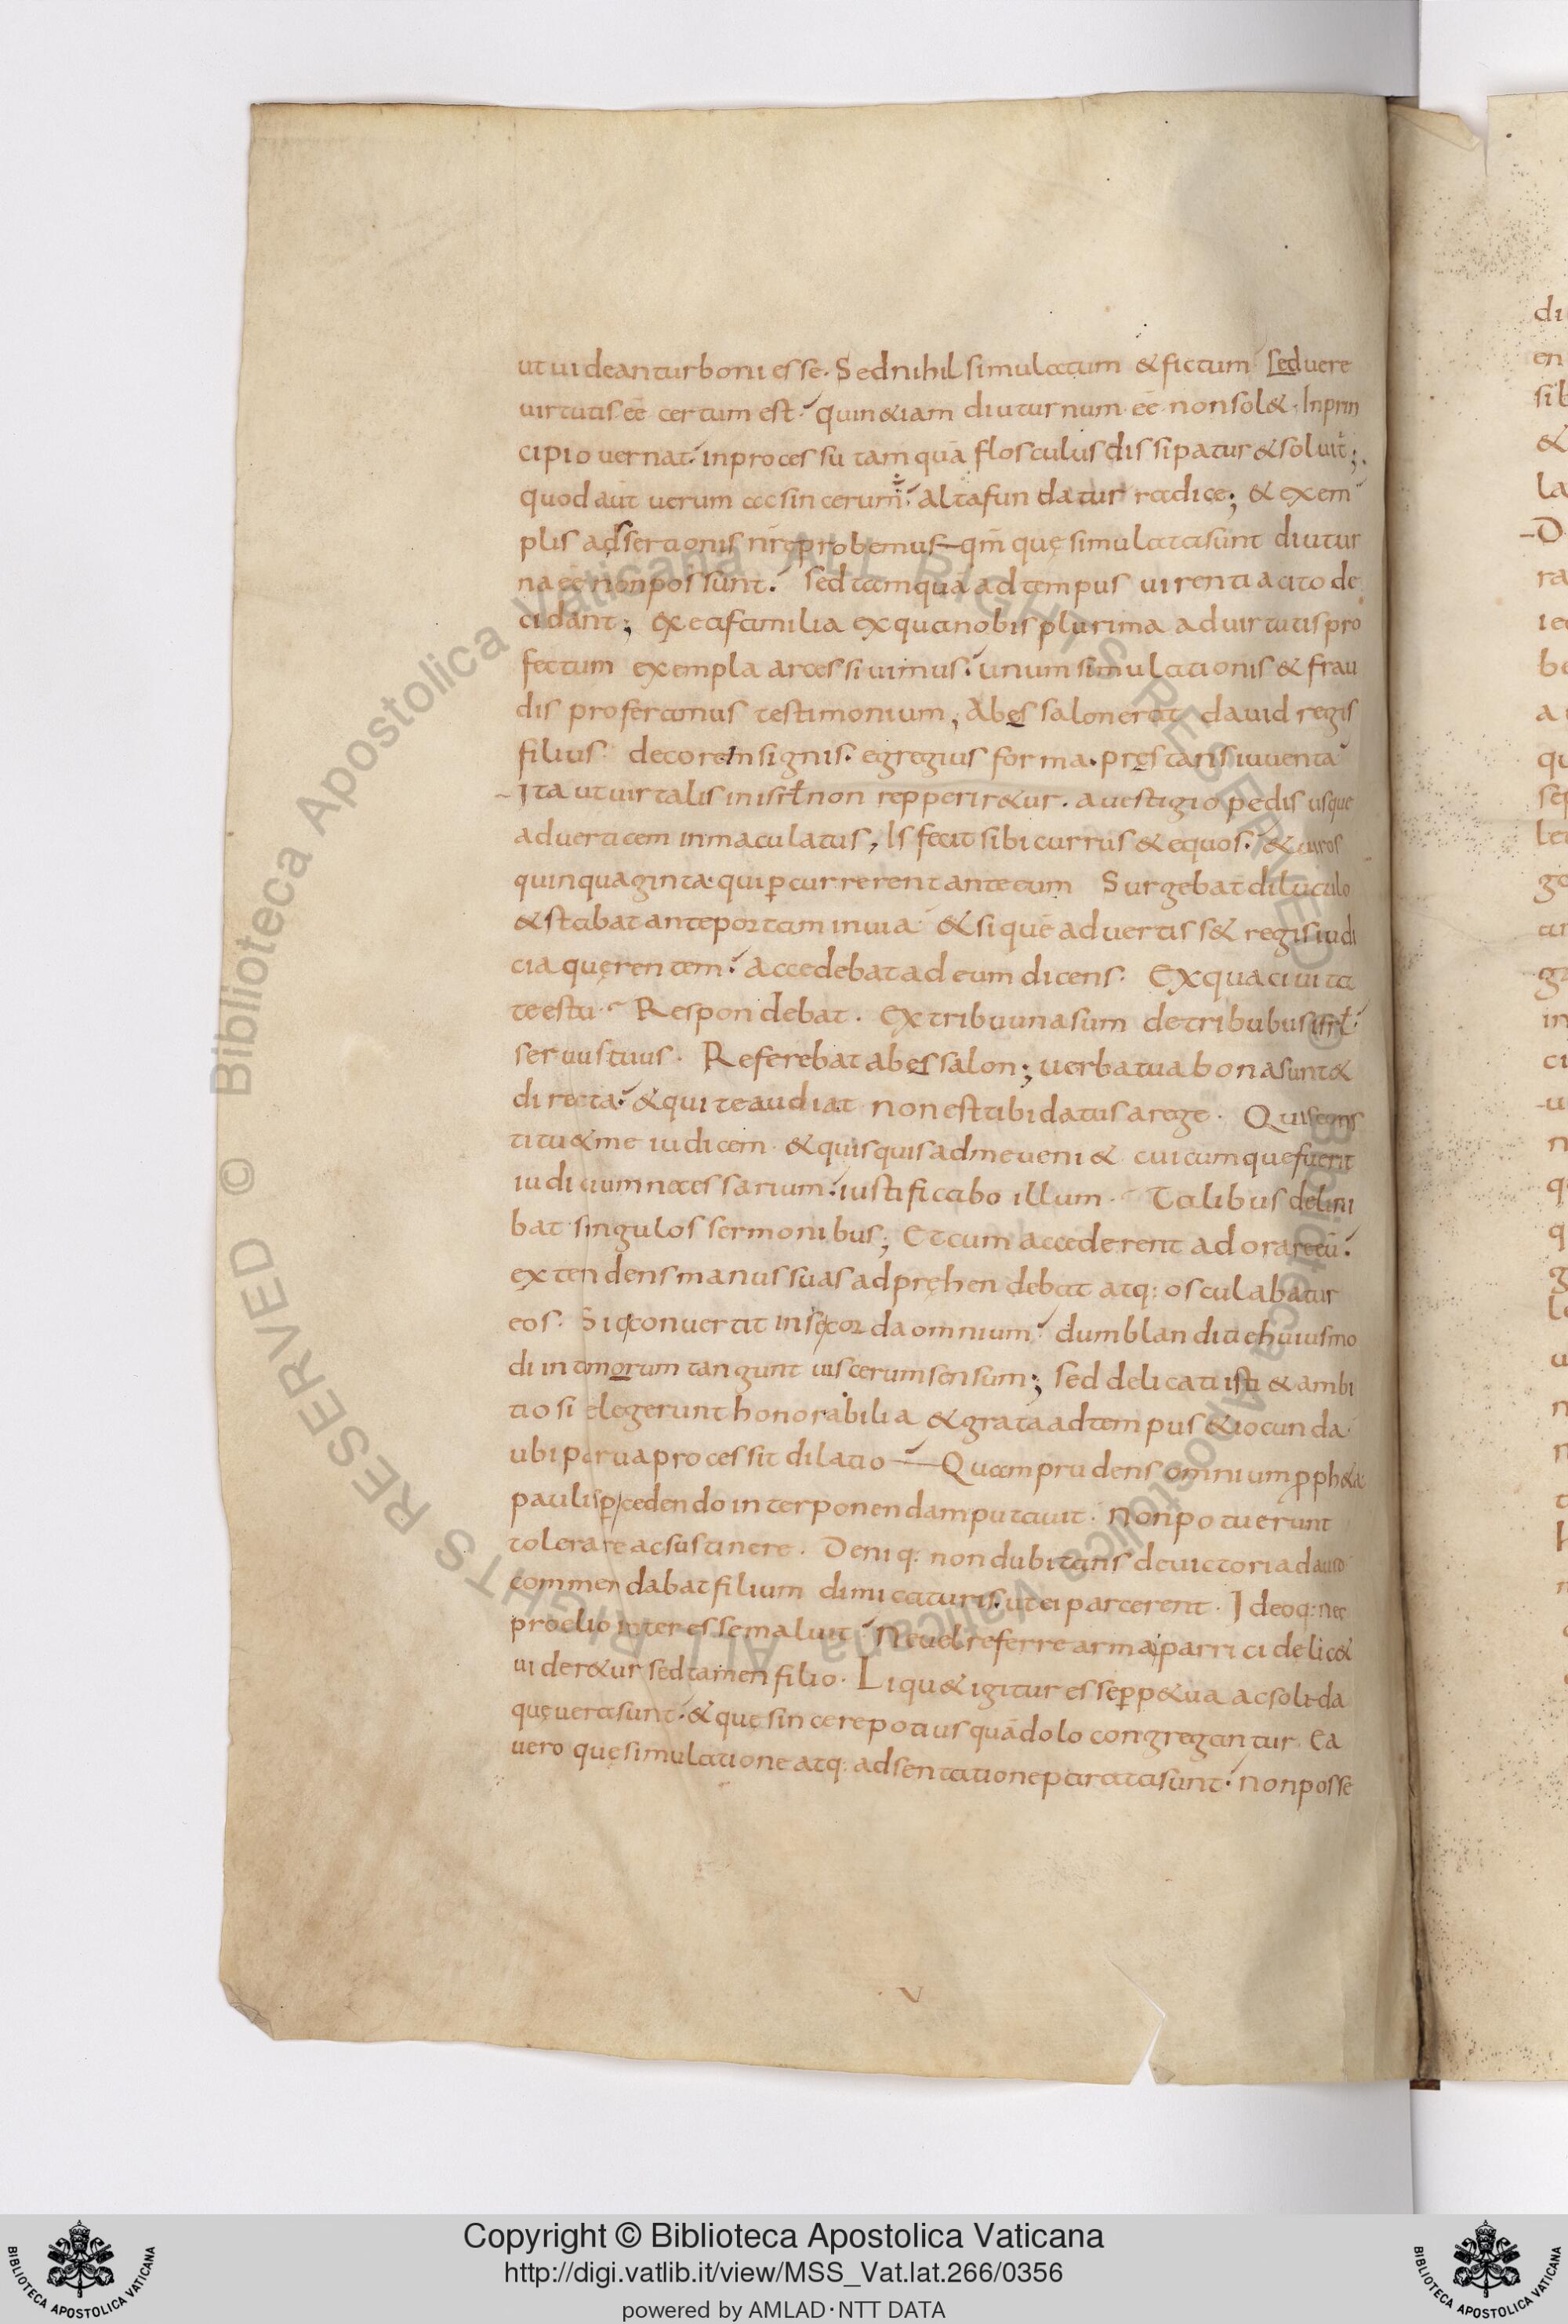 ut uideantur boni esse. Sed nihil simulatum & fictum sed uere
uirtutis eē certum est. quin&iam diuturnum eē non sol&. In prin
cipio uernat. in processu tamquā flosculus dissipatur & soluit̄;
quod aūt uerum ac sincerum. alta fundatur radice; & exem
plis adsertionis nr̄ę probemus qm̄ quę simulata sunt diutur
na eē non possunt. sed tamquā ad tempus uirentia cito de
cidant; ex ea familia ex qua nobis plurima ad uirtutis pro
fectum exempla arcessiuimus. unum simulationis & frau
dis proferamus testimonium; Abęssalon erat dauid regis
filius decore insignis. egregius forma. pręstans iuuenta
Ita ut uir talis in isrł non repperir&ur. a uestigio pedis usque
ad uerticem inmaculatus, Is fecit sibi currus & equos. & uiros
quinquaginta qui p̄currerent ante eum Surgebat diluculo
& stabat ante portam in uia & si quē aduertiss& regis iudi
cia quęrentem. accedebat ad eum dicens. Ex qua ciuita
te es tu. Respondebat. Ex tribu una sum de tribubus isrł
seruus tuus. Referebat abęssalon; uerba tua bona sunt &
directa. & qui te audiat non est tibi datus a rege. Quis cons
titu& me iudicem & quisquis ad me ueni& cuicumque fuerit
iudicium necessarium. iustificabo illum. Talibus delini
bat singulos sermonibus; Et cum accederent adorare eū.
extendens manus suas adpręhendebat atq: osculabatur
eos. Sic conuertit in se corda omnium. dum blanditię huiusmo
di intimorum tangunt uiscerum sensum; sed delicati isti & ambi
tiosi elegerunt honorabilia & grata ad tempus & iocunda
ubi parua processit dilatio Quam prudens omnium p̄ph&a
paulisp̄ cedendo interponendam putauit. Non potuerunt
tolerare ac sustinere. Deniq: non dubitans de uictoria dauid
commendabat filium dimicaturis. ut ei parcerent. Ideoq: nec
proelio interesse maluit Ne uel referre arma parricide lic&
uider&ur sed tamen filio. Liqu& igitur esse p̄p&ua ac solida
quę uera sunt. & quę sincere potius quā dolo congregantur Ea
uero quę simulatione atq: adsentatione parata sunt. non posse
v
Copyright © Biblioteca Apostolica Vaticana
http://digi.vatlib.it/view/MSS_Vat.lat.266/0356
powered by AMLAD·NTT DATA